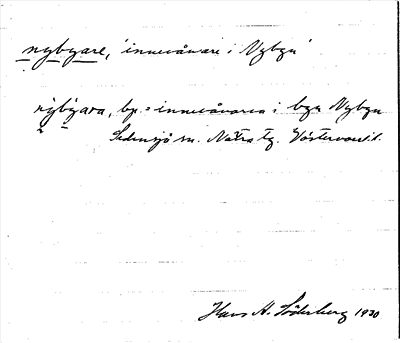 nybyare, 'innevånare i Nybyn'
nybyara, bp. = innevånarna i byn Nybyn
Sidensjö sn. Nätra tg. Västernorrl.
Hans A. Söderberg 1930